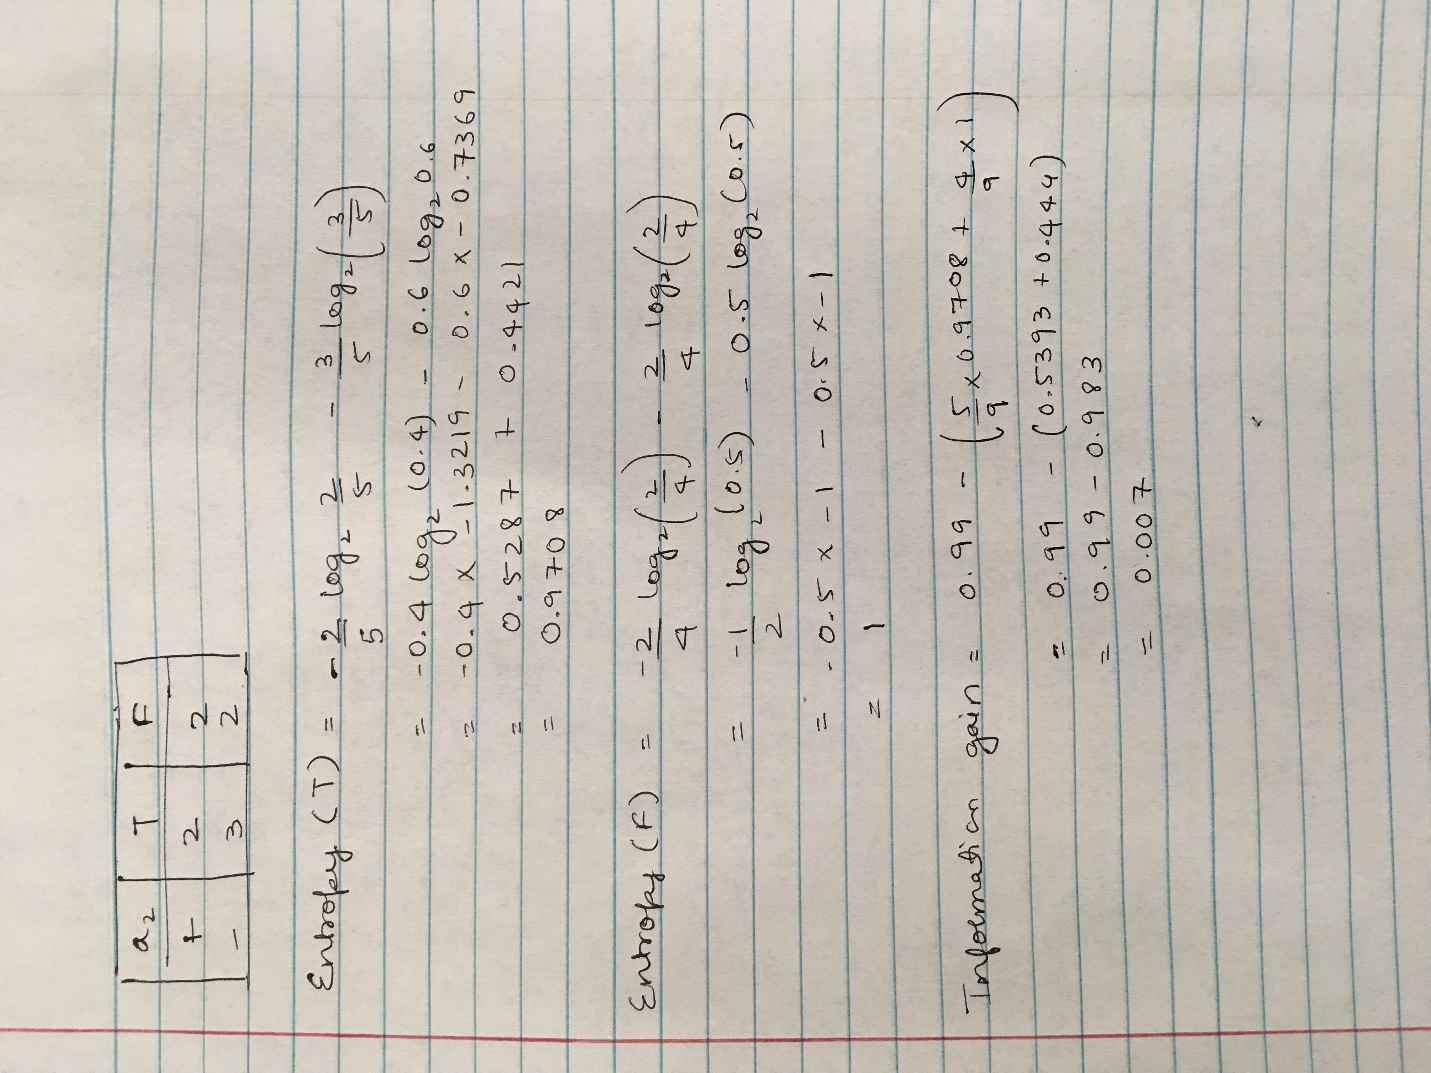 a₂ T F
+ 2 2
− 3 2
Entropy (T) = -2/5 log₂ 2/5 - 3/5 log₂(3/5)
= -0.4 log₂ (0.4) - 0.6 log₂ 0.6
= -0.4 x -1.3219 - 0.6 x -0.7369
= 0.5287 + 0.4421
= 0.9708
Entropy (F) = -2/4 log₂(2/4) - 2/4 log₂(2/4)
= -1/2 log₂ (0.5) - 0.5 log₂ (0.5)
= -0.5 x -1 - 0.5 x -1
= 1
Information gain = 0.99 - (5/9 x 0.9708 + 4/9 x 1)
= 0.99 - (0.5393 + 0.444)
= 0.99 - 0.983
= 0.007